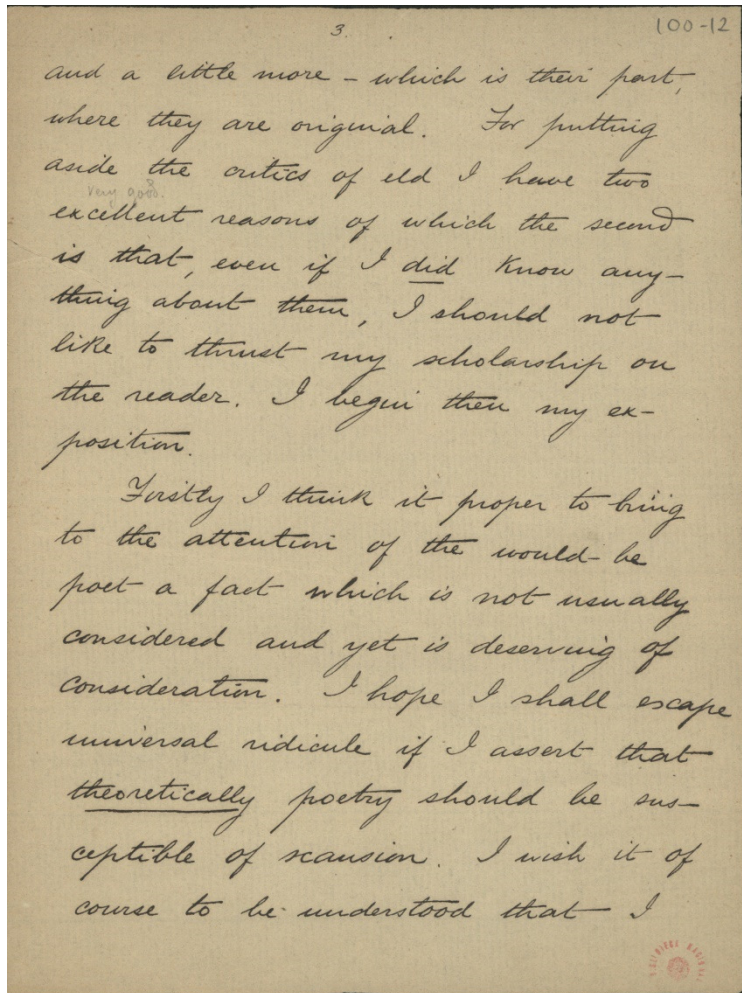 3.
100-12
and a little more – which is their part,
where they are original. For putting
aside the critics of eld I have two
very good.
excellent reasons of which the second
is that, even if I did know any-
thing about them, I should not
like to thrust my scholarship on
the reader. I begin then my ex-
position.
Firstly I think it proper to bring
to the attention of the would-be
poet a fact which is not usually
considered and yet is deserving of
consideration. I hope I shall escape
universal ridicule if I assert that
theoretically poetry should be sus-
ceptible of scansion. I wish it of
course to be understood that I
BIBLIOTECA NACIONAL